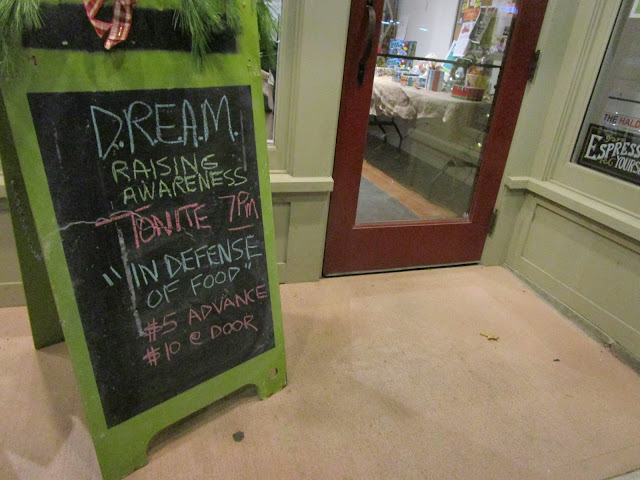 D.R.E.A.M.
RAISING
AWARENESS
TONITE 7PM
"IN DEFENSE
OF FOOD"
$5 ADVANCE
$10 @ DOOR
THE HALD
ESPRESS
YOURS